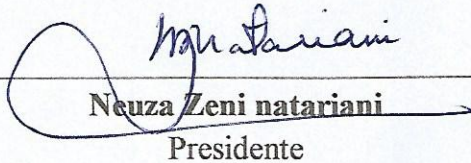 Neuza Zeni natariani
Presidente